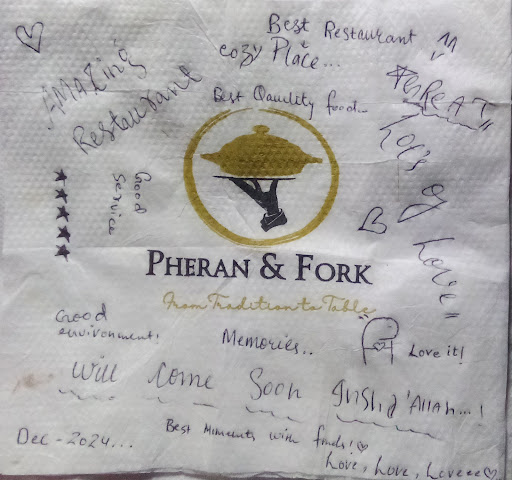 Best Restaurant
cozy Place...
AMAZing
Restaurant
Best Qauulity food..
GREAT
Lot's of Love"
Good
Service
PHERAN & FORK
From Tradition to Table
Good
environment!
Memories..
Love it!
Will Come Soon Insha'Allah...!
Best Moments with finds!
Dec-2024...
Love, Love, Loveee